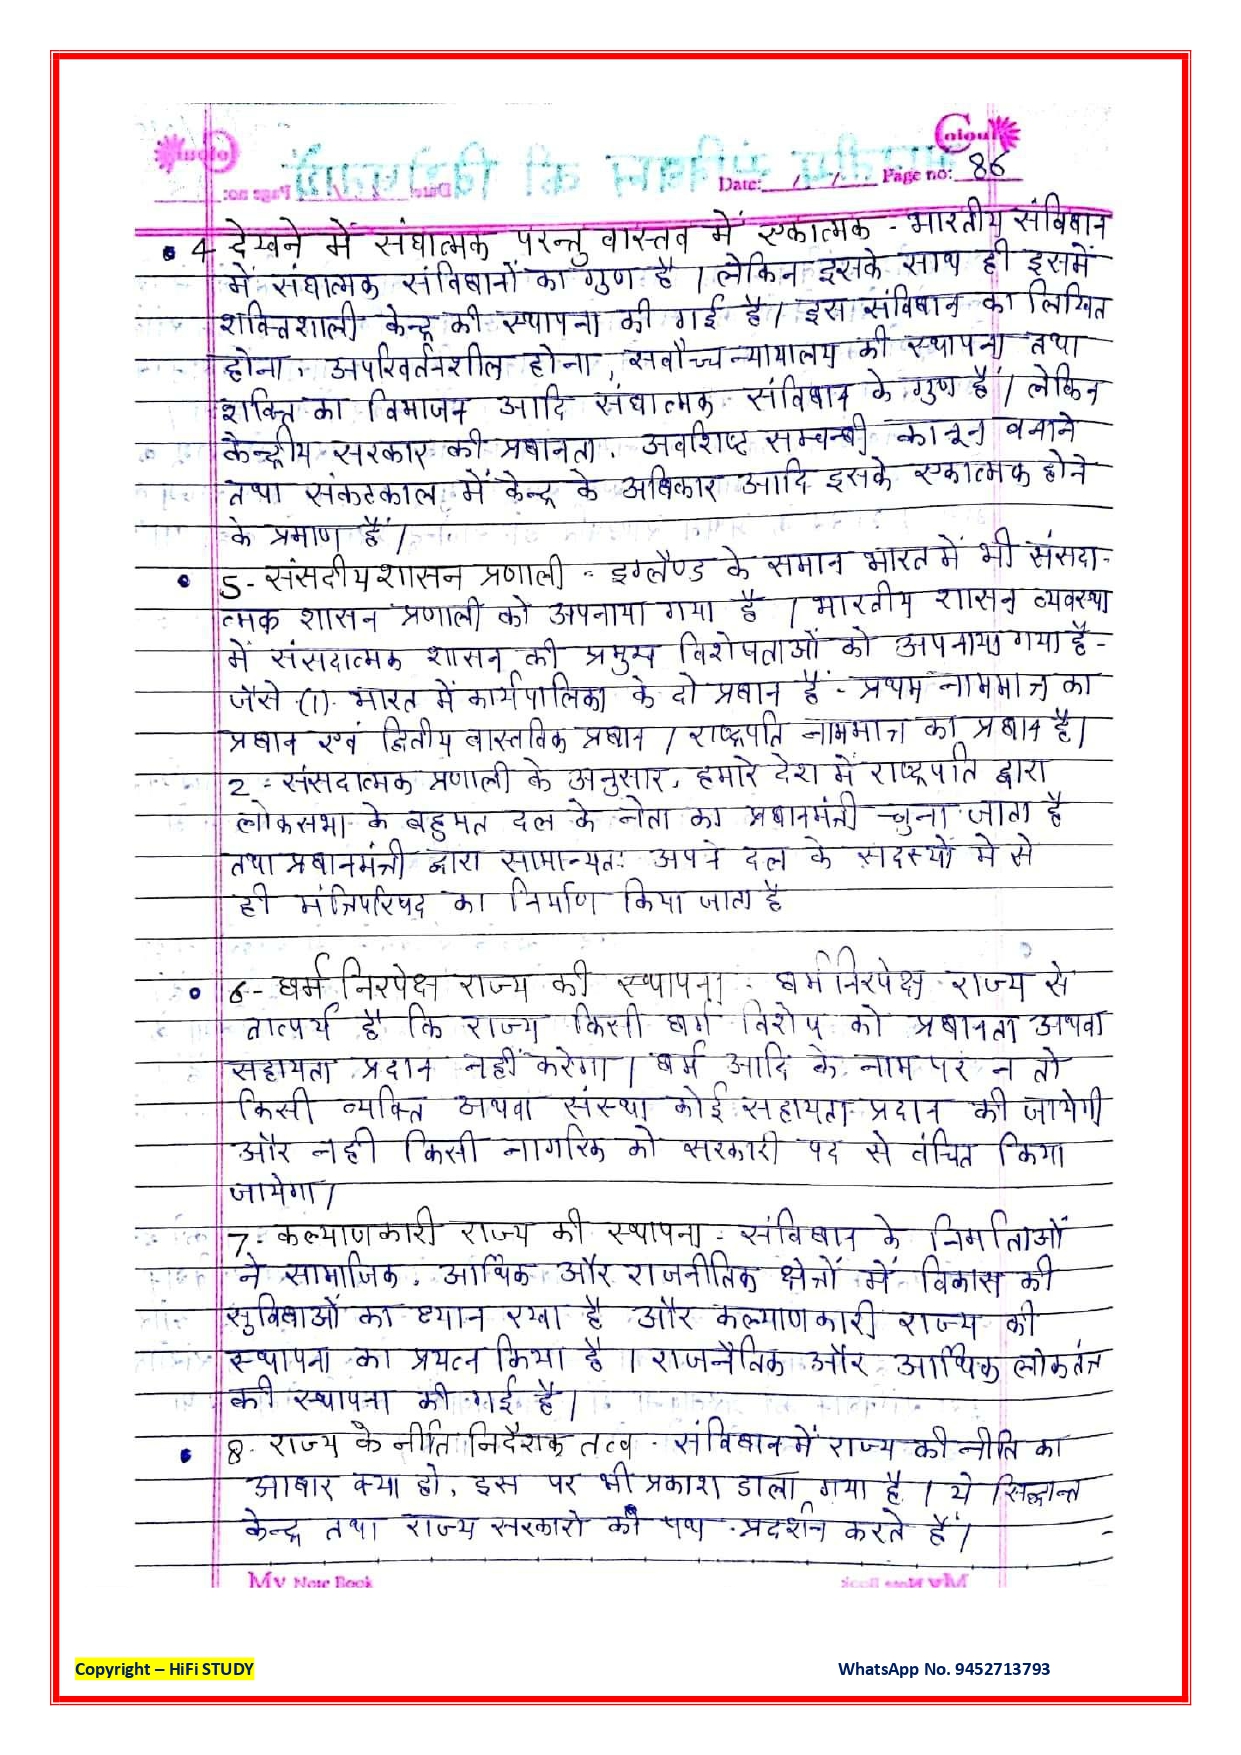 Colour
Date: / / Page no: 86
4 देखने में संघात्मक परन्तु वास्तव में एकात्मक - भारतीय संविधान
में संघात्मक संविधानों का गुण है / लेकिन इसके साथ ही इसमें
शक्तिशाली केन्द्र की स्थापना की गई है / इस संविधान का लिखित
होना, अपरिवर्तनशील होना, सर्वोच्च न्यायालय की स्थापना तथा
शक्ति का विभाजन आदि संघात्मक संविधान के गुण हैं / लेकिन
केन्द्रीय सरकार की प्रधानता, अवशिष्ट सम्बन्धी कानून बनाने
तथा संकटकाल में केन्द्र के अधिकार आदि इसके एकात्मक होने
के प्रमाण हैं /
5- संसदीय शासन प्रणाली - इग्लैण्ड के समान भारत में भी संसदा-
त्मक शासन प्रणाली को अपनाया गया है / भारतीय शासन व्यवस्था
में संसदात्मक शासन की प्रमुख विशेषताओं को अपनाया गया है -
जैसे (1) भारत में कार्यपालिका के दो प्रधान हैं - प्रथम नाममात्र का
प्रधान एवं द्वितीय वास्तविक प्रधान / राष्ट्रपति नाममात्र का प्रधान है /
2 - संसदात्मक प्रणाली के अनुसार, हमारे देश में राष्ट्रपति द्वारा
लोकसभा के बहुमत दल के नेता का प्रधानमंत्री चुना जाता है
तथा प्रधानमंत्री द्वारा सामान्यतः अपने दल के सदस्यों मे से
ही मंत्रिपरिषद का निर्माण किया जाता है
6 - धर्म निरपेक्ष राज्य की स्थापना - धर्म निरपेक्ष राज्य से
तात्पर्य है कि राज्य किसी धर्म विशेष को प्रधानता अथवा
सहायता प्रदान नहीं करेगा / धर्म आदि के नाम पर न तो
किसी व्यक्ति अथवा संस्था कोई सहायता प्रदान की जायेगी
और नही किसी नागरिक को सरकारी पद से वंचित किया
जायेगा /
7 - कल्याणकारी राज्य की स्थापना - संविधान के निर्माताओं
ने सामाजिक, आर्थिक और राजनीतिक क्षेत्रों में विकास की
सुविधाओं का ध्यान रखा है और कल्याणकारी राज्य की
स्थापना का प्रयत्न किया है / राजनैतिक और आर्थिक लोकतंत्र
की स्थापना की गई है /
8- राज्य के नीति निर्देशक तत्व - संविधान में राज्य की नीति का
आधार क्या हो, इस पर भी प्रकाश डाला गया है / ये सिद्धान्त
केन्द्र तथा राज्य सरकारो की पथ - प्रदर्शन करते हैं /
My Note Book
Copyright – HiFi STUDY WhatsApp No. 9452713793